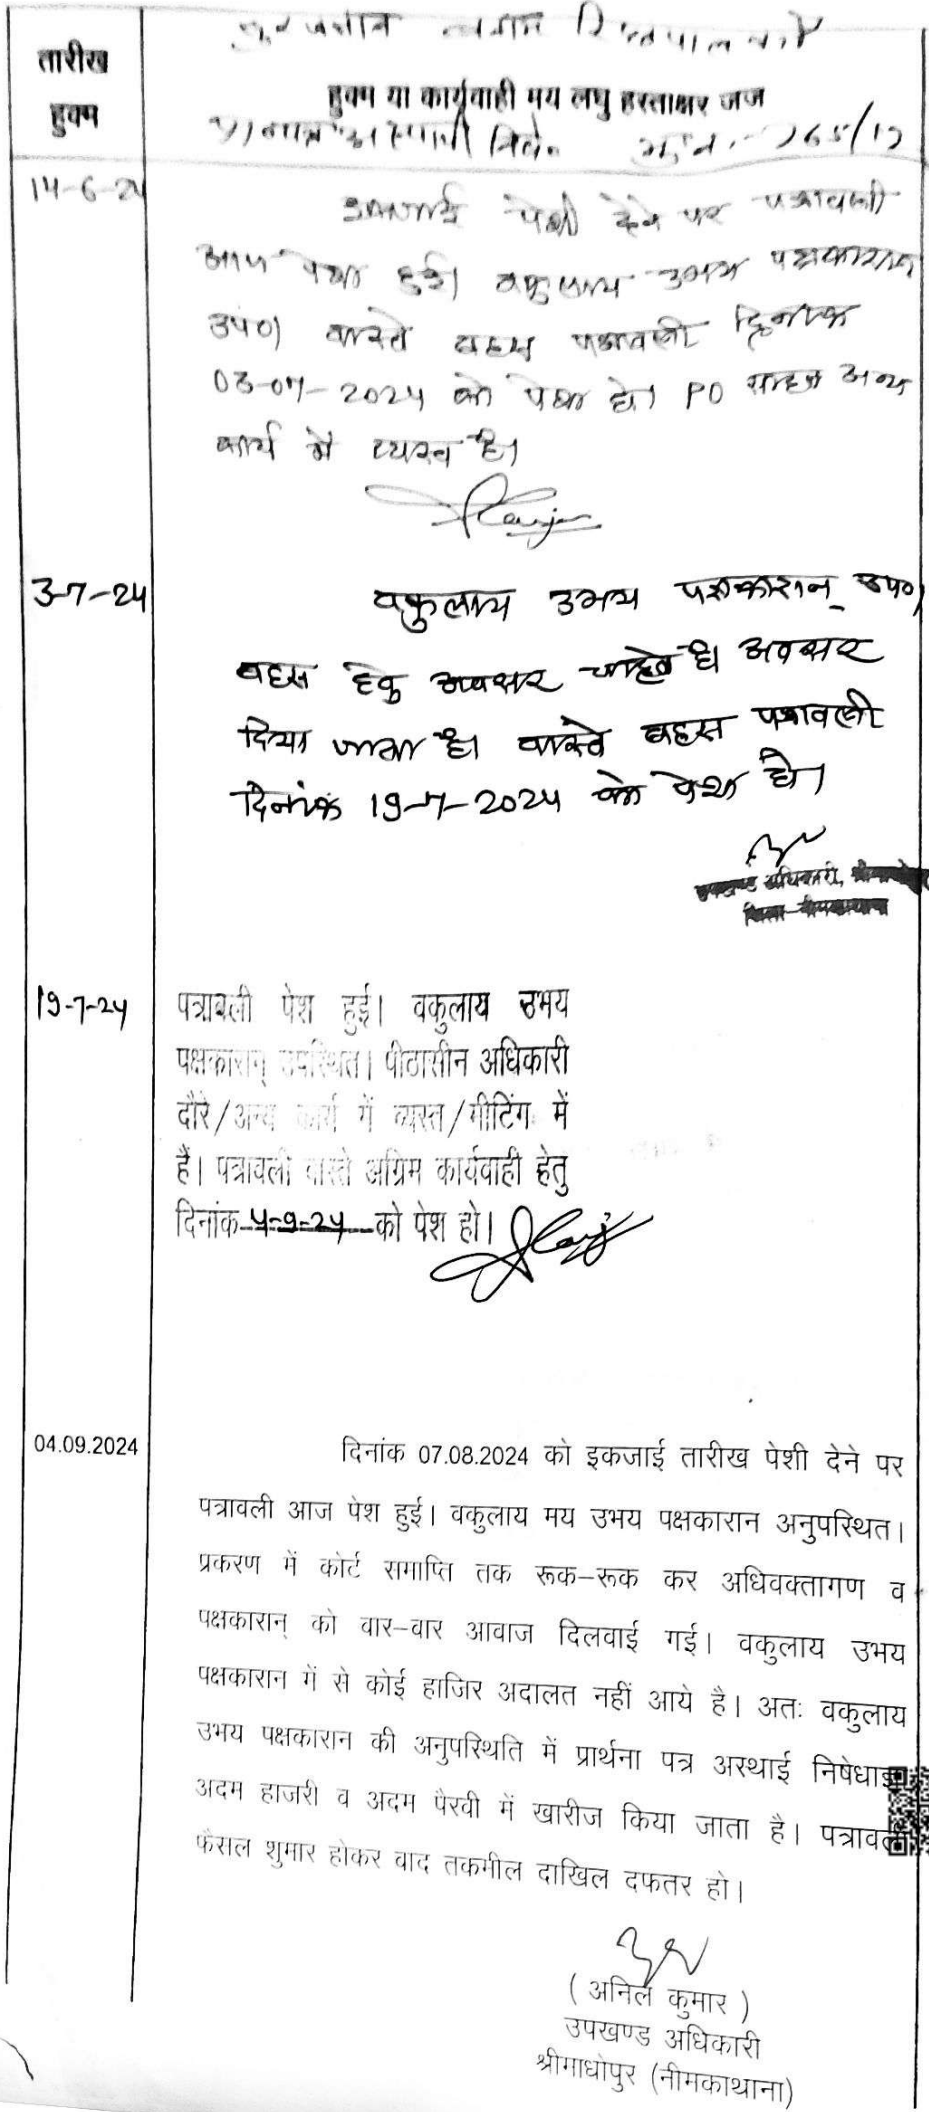 तारीख
हुक्म
बनाम
हुक्म या कार्यवाही मय लघु हस्ताक्षर जज
265/17
14-6-24
इकजाई पेशी देने पर पत्रावली
आज पेश हुई। वकुलाय उभय पक्षकारान
उप०। वास्ते बहस पत्रावली दिनांक
03-07-2024 को पेश हो। PO साहब अन्य
कार्य में व्यस्त है।
3-7-24
वकुलाय उभय पक्षकारान् उप०।
बहस हेतु अवसर चाहते है। अवसर
दिया जाता है। वास्ते बहस पत्रावली
दिनांक 19-7-2024 को पेश हो।
उपखण्ड अधिकारी,
19-7-24
पत्रावली पेश हुई। वकुलाय उभय
पक्षकारान् उपस्थित। पीठासीन अधिकारी
दौरे/अन्य कार्य में व्यस्त/मीटिंग में
हैं। पत्रावली वास्ते अग्रिम कार्यवाही हेतु
दिनांक 4-9-24 को पेश हो।
04.09.2024
दिनांक 07.08.2024 को इकजाई तारीख पेशी देने पर
पत्रावली आज पेश हुई। वकुलाय मय उभय पक्षकारान अनुपस्थित।
प्रकरण में कोर्ट समाप्ति तक रूक-रूक कर अधिवक्तागण व
पक्षकारान् को वार-वार आवाज दिलवाई गई। वकुलाय उभय
पक्षकारान में से कोई हाजिर अदालत नहीं आये है। अतः वकुलाय
उभय पक्षकारान की अनुपस्थिति में प्रार्थना पत्र अस्थाई
अदम हाजरी व अदम पैरवी में खारीज किया जाता है।
फैसल शुमार होकर वाद तकमील दाखिल दफतर हो।
( अनिल कुमार )
उपखण्ड अधिकारी
श्रीमाधोपुर (नीमकाथाना)